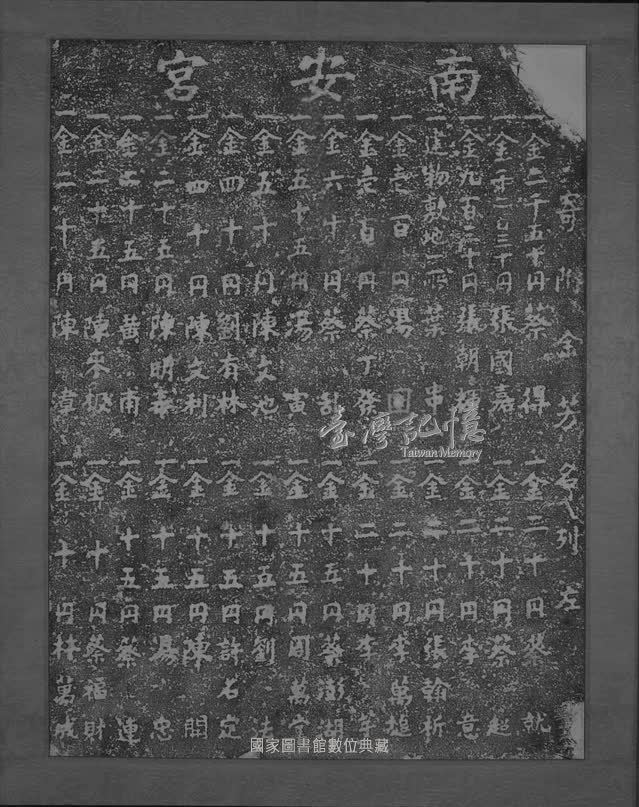 南安宮
寄附金芳名列左
一金二千五十円 蔡得
一金 円 張國嘉
一金九百二十円 張朝
一建物敷地一所 葉串
一金壱百円 湯回
一金壱百円 蔡丁癸
一金六十円 蔡乱
一金五十五円 湯寅
一金五十円 陳文池
一金四十円 劉有林
一金四十円 陳文利
一金二十五円 陳明
一金二十五円 黃甫
一金二十五円 陳來
一金二十円 陳
一金二十円 就
一金二十円 蔡起
一金二十円 李意
一金二十円 張翰析
一金二十円 李萬
一金二十円 李
一金十五円 蔡澎湖
一金十五円 周萬
一金十五円 劉
一金十五円 許石定
一金十五円 陳開
一金十五円 湯忠
一金十五円 蔡連
一金十円 蔡福財
一金十円 林萬成
臺灣記憶
Taiwan Memory
國家圖書館數位典藏